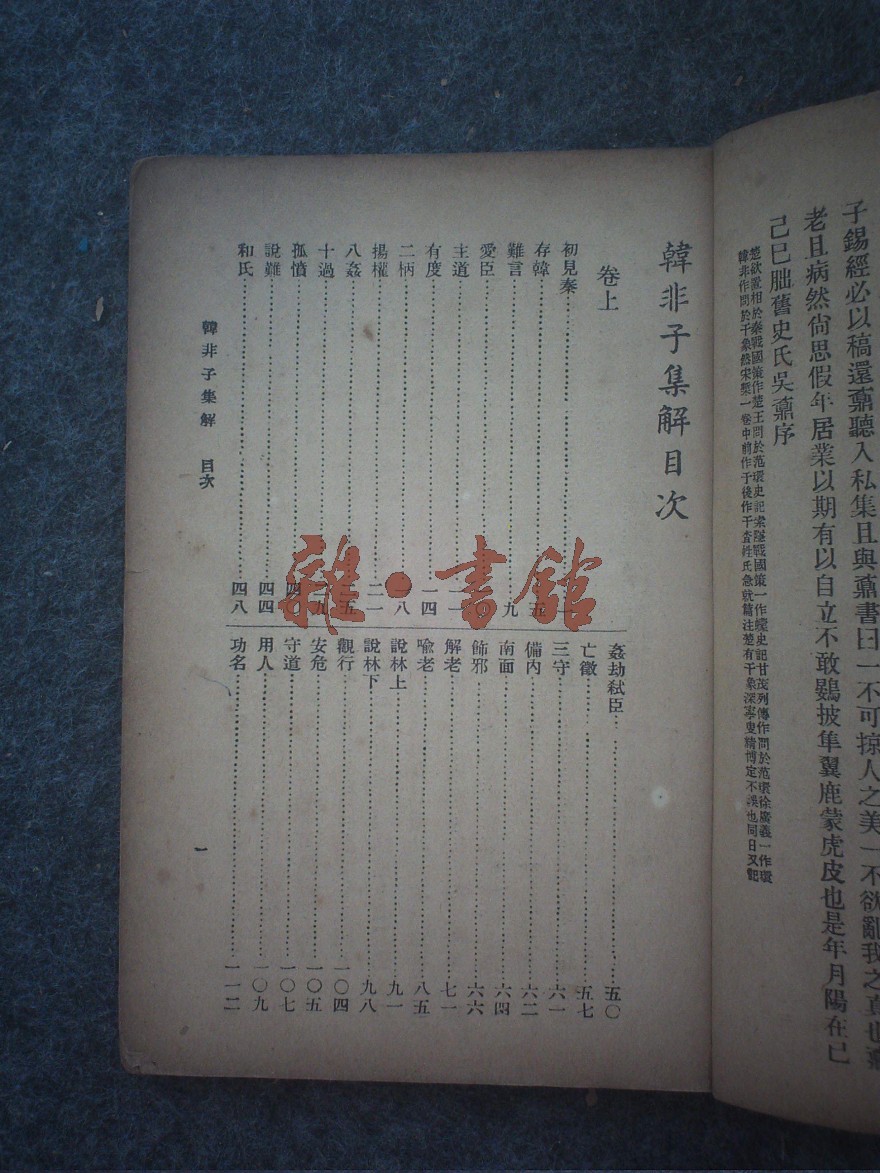 子錫經必以稿還鼒聽入私集且與鼒書曰一不可掠人之美一不欲亂我之真也鼒
老且病然尙思假年居業以期有以自立不敢鷃披隼翼鹿蒙虎皮也是年月陽在已
己巳朏舊史氏吳鼒序
楚欲置相於秦戰國策作楚王問於范環史記索隱戰國策一作蠉史記甘茂列傳作問於范環徐廣義一作環
韓非作問於干象然宋槧一卷中前作于後作干查姓氏急就篇注楚有干象深寧叟精博定不誤也同日又記
韓非子集解目次
卷上
初見秦…………一
存韓…………五
難言…………九
愛臣…………
主道…………一一
有度…………一四
二柄…………一八
揚權…………二一
八姦…………二五
十過…………九
孤憤…………四〇
說難…………四四
和氏…………四八
姦劫弑臣…………五〇
亡徵…………五七
三守…………六一
備內…………六二
南面…………六四
飾邪…………六六
解老…………七一
喻老…………八五
說林上…………九一
說林下…………九八
觀行…………一〇四
安危…………一〇五
守道…………一〇七
用人…………一〇九
功名…………一一二
韓非子集解 目次
一
雜·書館